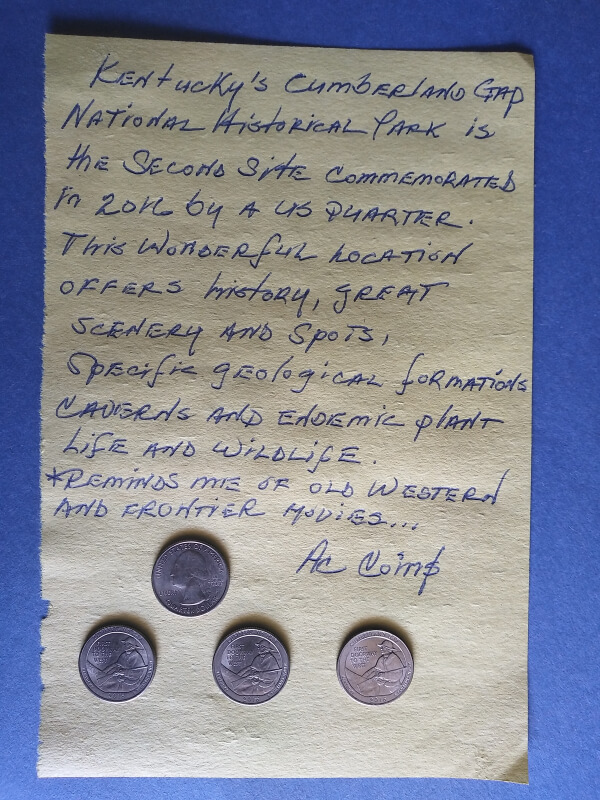 Kentucky's Cumberland Gap
National Historical Park is
the Second Site commemorated
in 2016 by a US Quarter.
This wonderful location
offers history, great
scenery and spots,
Specific geological formations
caverns and endemic plant
life and wildlife.
*Reminds me of old western
and frontier movies...
Ac Coins
FIRST
DOORWAY
TO THE
WEST